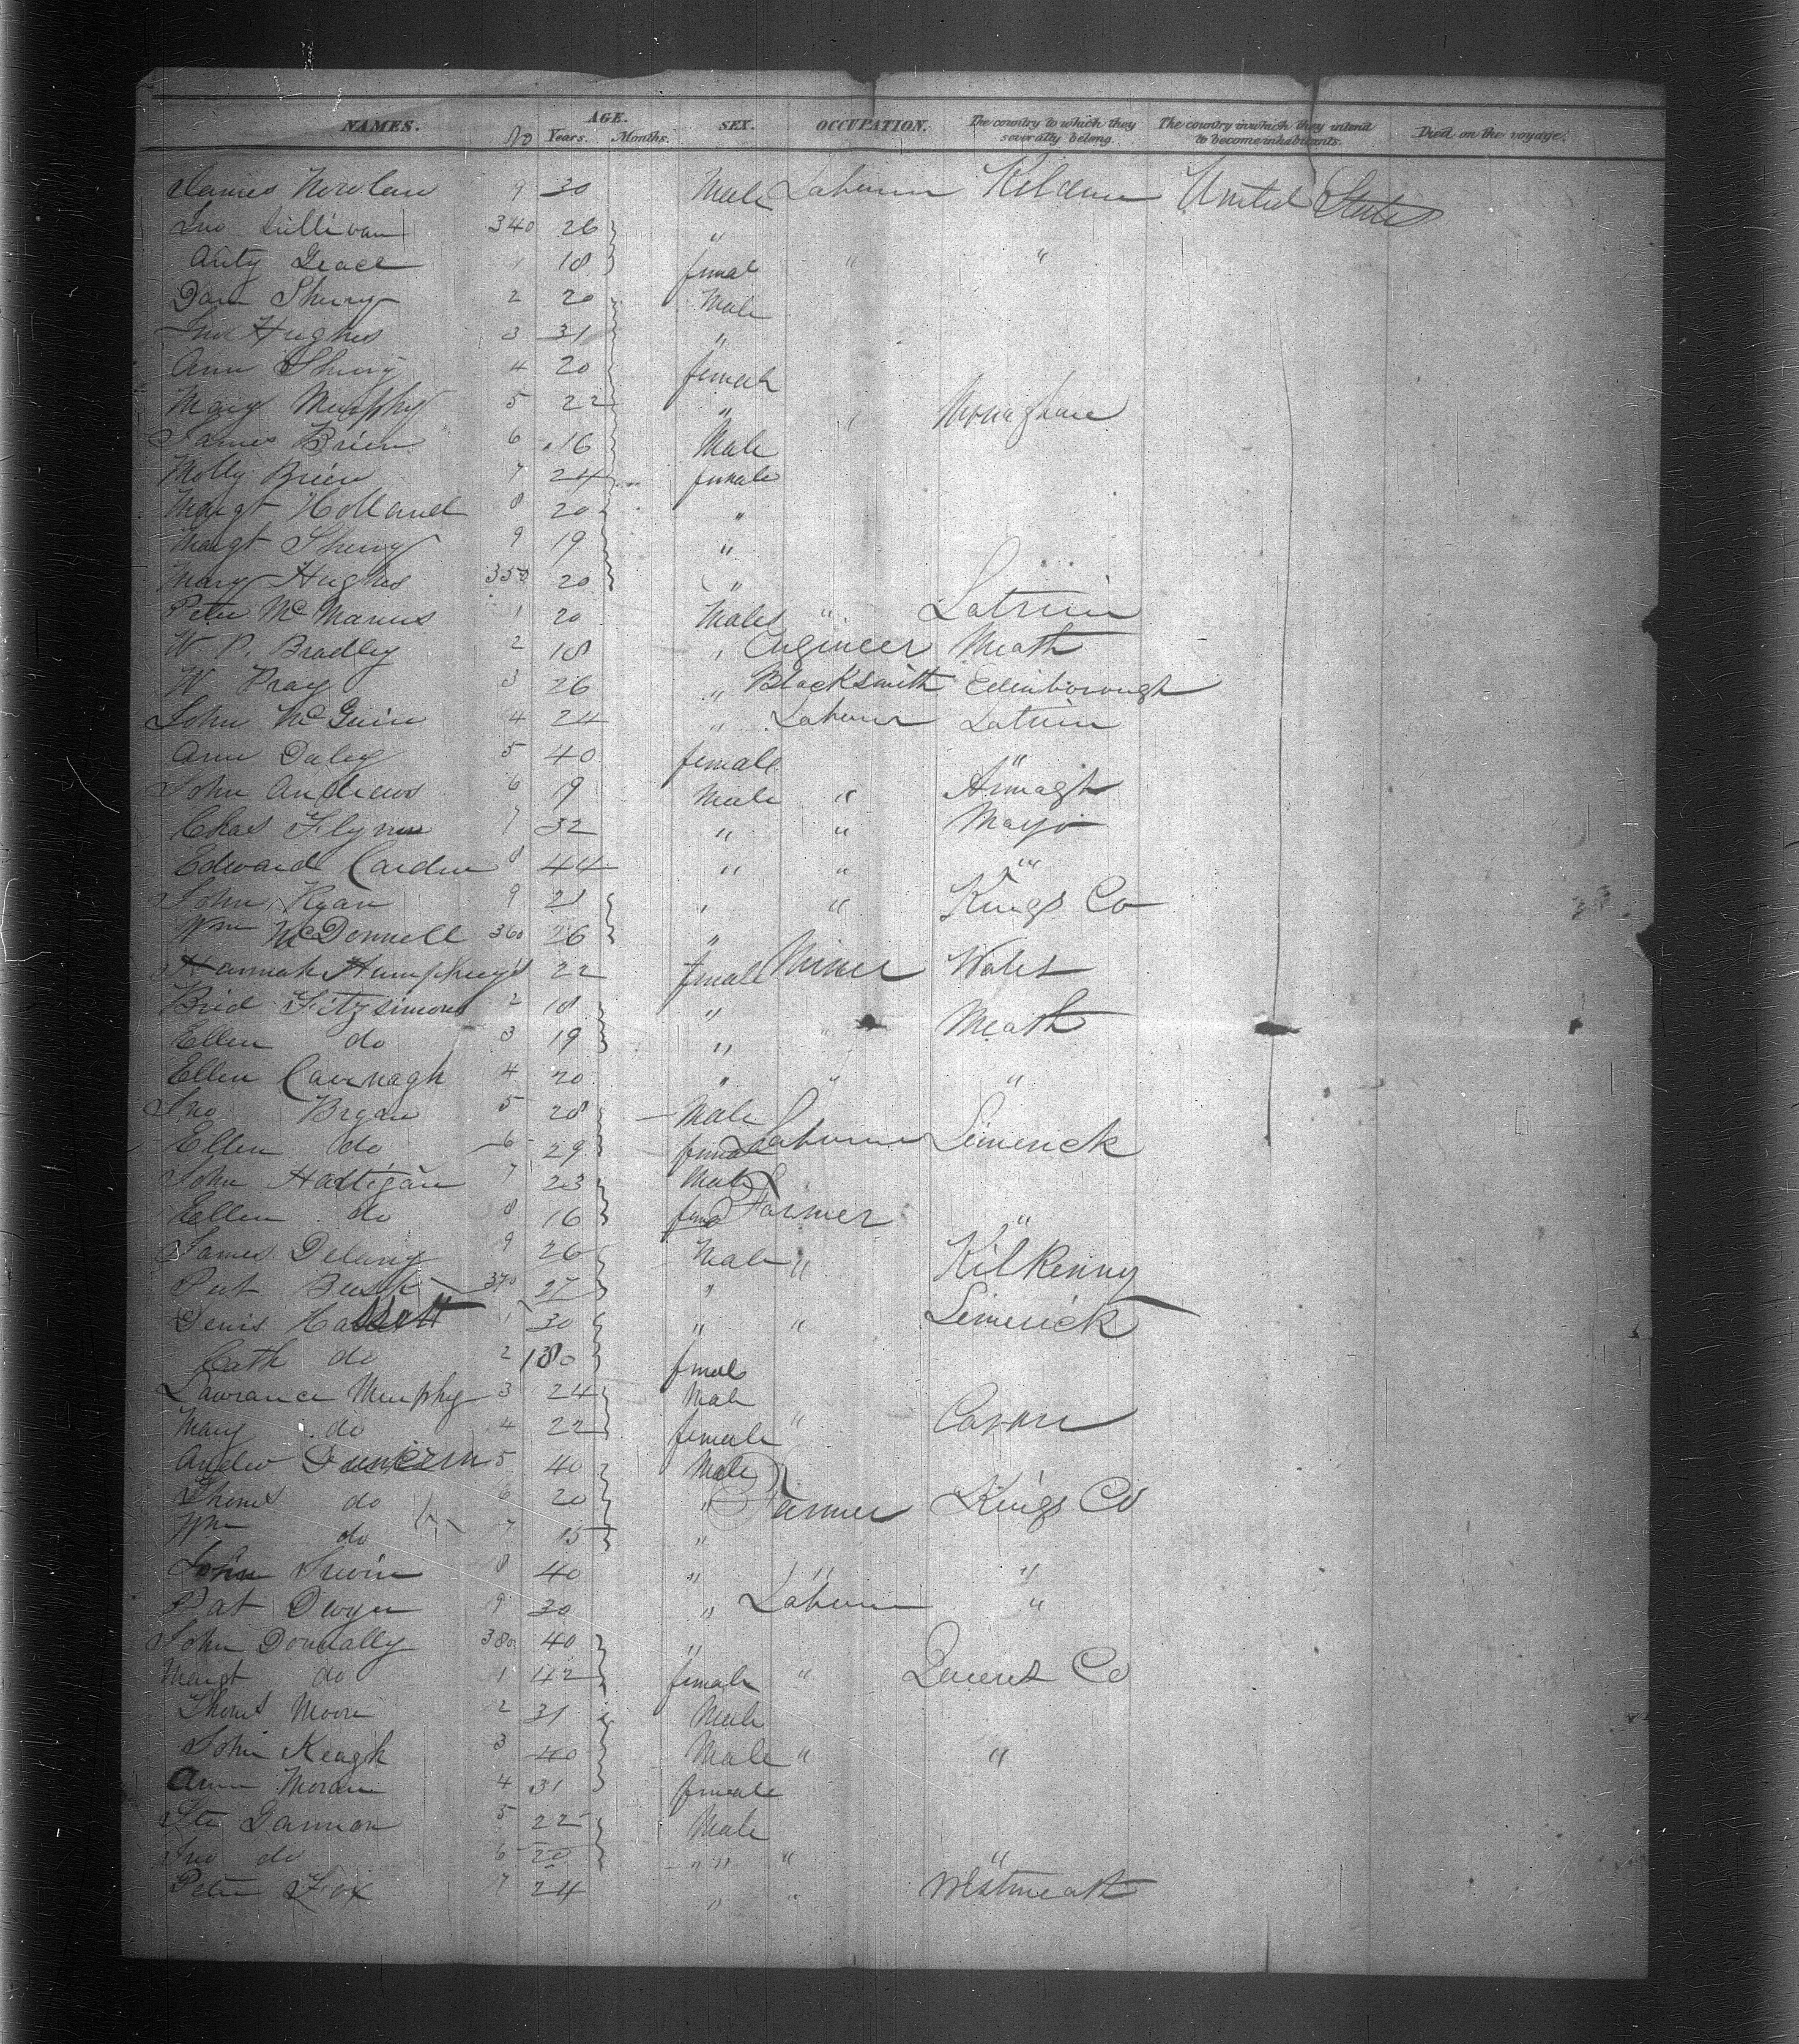 NAMES. No AGE. Years. Months. SEX. OCCUPATION. The country to which they severally belong. The country in which they intend to become inhabitants. Died on the voyage.
James Nowlan 9 30 Male Labourer Kildare United States
Jno Sullivan 340 26 "
Anty Grace 1 18 femal " "
Dan Sherry 2 20 Male
Jno Hughes 3 31 "
Ann Sherry 4 20 female
Mary Murphy 5 22 " " Monaghan
James Brien 6 16 Male
Molly Brien 7 24 female
Margt Holland 8 20 "
Margt Sherry 9 19 "
Mary Hughes 350 20 "
Peter McManus 1 20 Males " Latrim
W P. Bradley 2 18 " Engineer Meath
W Pray 3 26 " Blacksmith Edinborough
John McGuire 4 24 " Labourer Latrim
Ann Daley 5 40 female "
John Andrews 6 19 Male " Armagh
Chas Flynn 7 32 " " Mayo
Edward Carden 8 44 " " "
John Ryan 9 21 " " Kings Co
Wm McDonnell 360 26 "
Hannah Humphreys 1 22 female Miner Wales
Brid Fitzsimons 2 18 "
Ellen do 3 19 " " Meath
Ellen Cavenagh 4 20 " " "
Jno Bryan 5 28 Male
Ellen do 6 29 female Labourer Limerick
John Hartigan 7 23 Male
Ellen do 8 16 fema Farmer "
James Delany 9 26 Male " Kilkenny
Pat 370 27 "
Denis Hassett 1 30 " " Limerick
Cath do 2 30 female
Lawrance Murphy 3 24 Male
Mary do 4 22 female " Cavan
Andw 5 40 Male
Thoms do 6 20 " Farmer Kings Co
Wm do 7 15 "
John Irwin 8 40 " " "
Pat Dwyer 9 30 " Labourer "
John Donnally 380 40 "
Margt do 1 42 female " Queens Co
Thoms Moore 2 31 Male
John Keagh 3 40 Male " "
Ann Moran 4 31 female
Ste Gannon 5 22 Male
Jno do 6 20 " " " "
Peter Fox 7 24 " " Westmeath